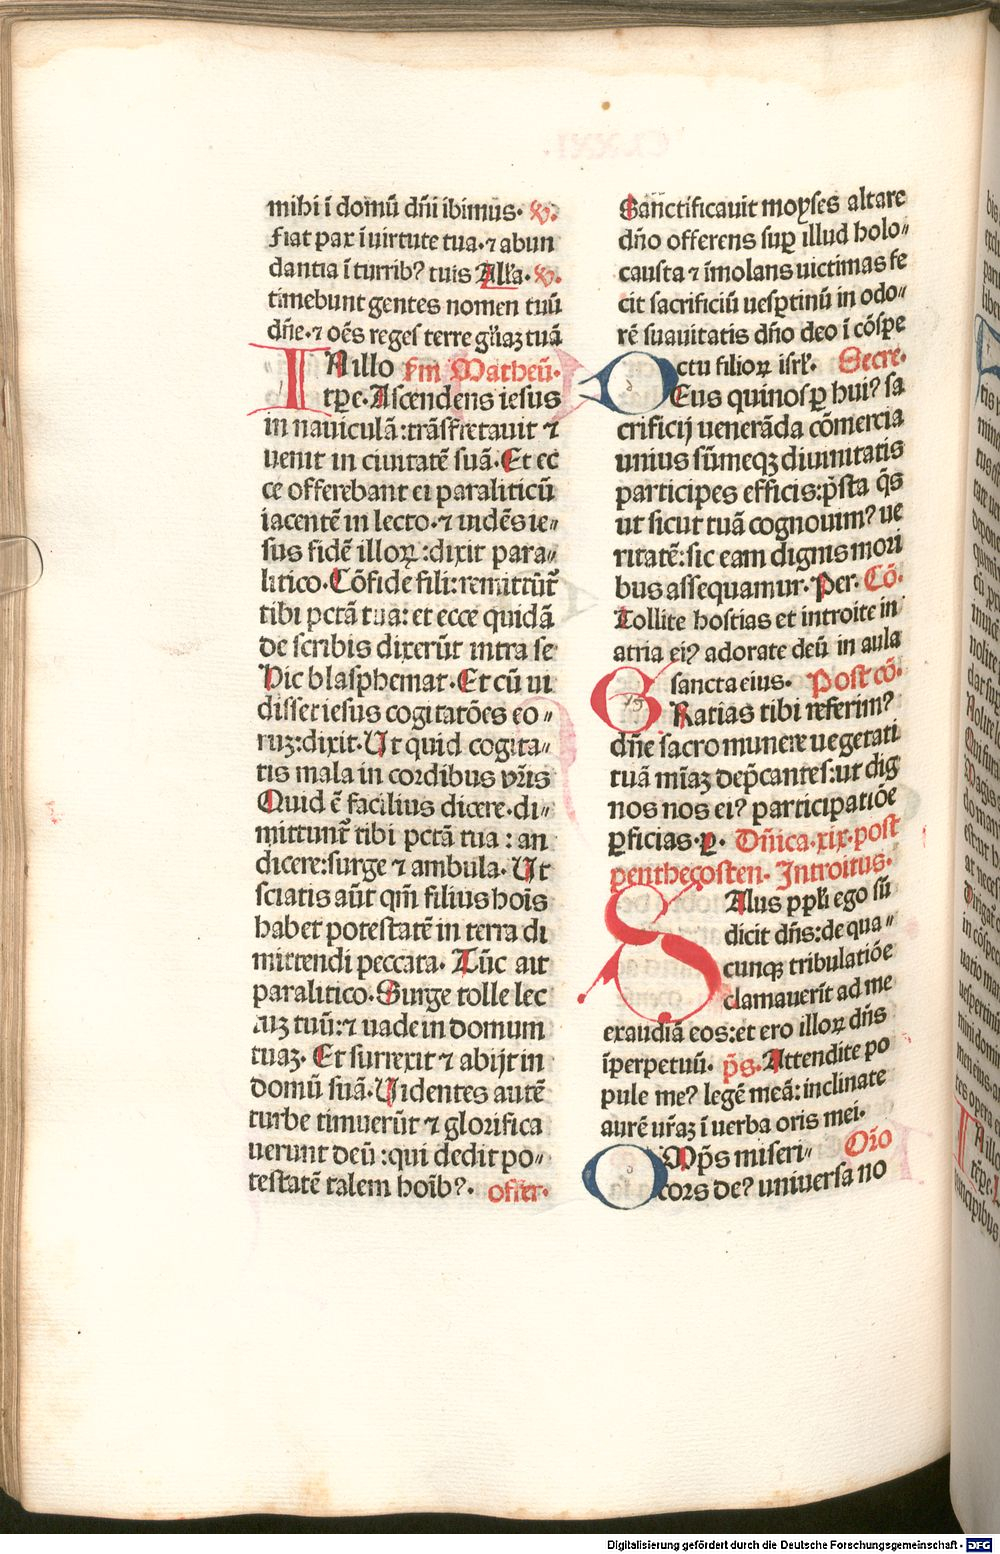 mihi ī domū dn̄i ibimus· v̇.
Fiat pax ī uirtute tua·⁊ abun
dantia ī turribꝰ tuis All'a· v̇.
timebunt gentes nomen tuū
dn̄e·⁊ oēs reges terre gl'iaꝫ tuā
IN illo s̄m Matheū·
tp̄e· Ascendens iesus
in nauiculā:trāsfretauit ⁊
uenit in ciuitatē suā· Et ec
ce offerebant ei paraliticū
iacentē in lecto·⁊ uidēs ie〃
sus fidē illoꝝ :dixit para〃
litico· Cōfide fili:remittūt᷑
tibi pctā tua: et ecce quidā
de scribis dixerūt intra se
Hic blasphemat· Et cū ui
disset iesus cogitatōes eo〃
ruꝫ:dixit· Ut quid cogita〃
tis mala in cordibus vr̄is
Quid ē facilius dicere·di〃
mittunt᷑ tibi pctā tua : an
dicere:surge ⁊ ambula· Ut
sciatis aūt qm̄ filius hois̄
habet potestatē in terra di
mittendi peccata· Tūc ait
paralitico· Surge tolle lec
tuꝫ tuū:⁊ uade in domum
tuaꝫ· Et surrexit ⁊ abijt in
domū suā· Uidentes autē
turbe timuerūt ⁊ glorifica
uerunt deū :qui dedit po〃
testatē talem hoīb?· offer·
Sanctificauit moyses altare
dn̄o offerens sup̱ illud holo〃
causta ⁊ īmolans uictimas fe
cit sacrificiū uesp̱tinū in odo〃
rē suauitatis dn̄o deo ī cōspe
ctu filioꝝ isrl'· Secre·
DEus qui nos ꝑ hui? sa
crificij uenerāda cōmercia
unius sūmeqꝫ diuinitatis
participes efficis:p̄sta q̄s
ut sicut tuā cognouim? ue
ritatē:sic eam dignis mori
bus assequamur· Per· Cō·
Tollite hostias et introite in
atria ei? adorate deū in aula
sancta eius· Post cō·
GRatias tibi referim?
dn̄e sacro munere uegetati
tuā mīaꝫ dep̄cantes:ut dig
nos nos ei? participatiōe
ꝑficias·ꝑ· Dn̄ica·xix·post
penthecosten· Introitus·
SAlus pp̄li ego sū
dicit dn̄s:de qua〃
cunqꝫ tribulatiōe
clamauerīt ad me
exaudiā eos:et ero illoꝝ dn̄s
īperpetuū· p̄s· Attendite po
pule me? legē meā: inclinate
aurē ur̄aꝫ ī uerba oris mei·
OMp̄s miseri〃 Orō
cors de? uniuersa no